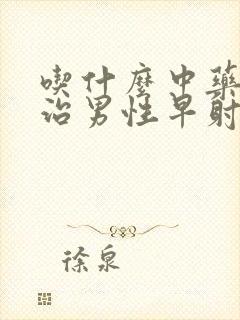 喫什麼中藥
治男性早射
徐泉